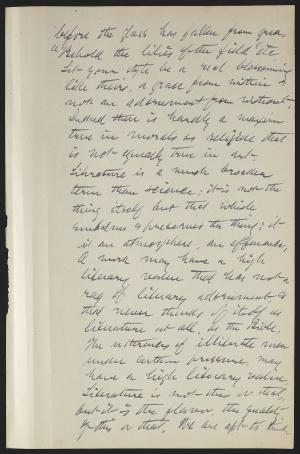 before the glass has fallen from grass
"Behold the lilies of the field" etc
Let your style be a real blossoming
like theirs, a grace from within &
not an adornment from without.
Indeed there is hardly a maxim
true in morals or religion that
is not equally true in art.
Literature is a much broader
term than science; it is not the
thing itself but that which
embalms & preserves the thing; it
is an atmosphere, an effluence,
A work may have a high
literary value that has not a
rag of literary adornment &
that never thinks of itself as
literature at all, as the Bible.
The utterances of illiterate men
under certain pressure, may
have a high literary value,
Literature is not this or that,
but it is the flavor, the quality
of this or that. We are apt to think